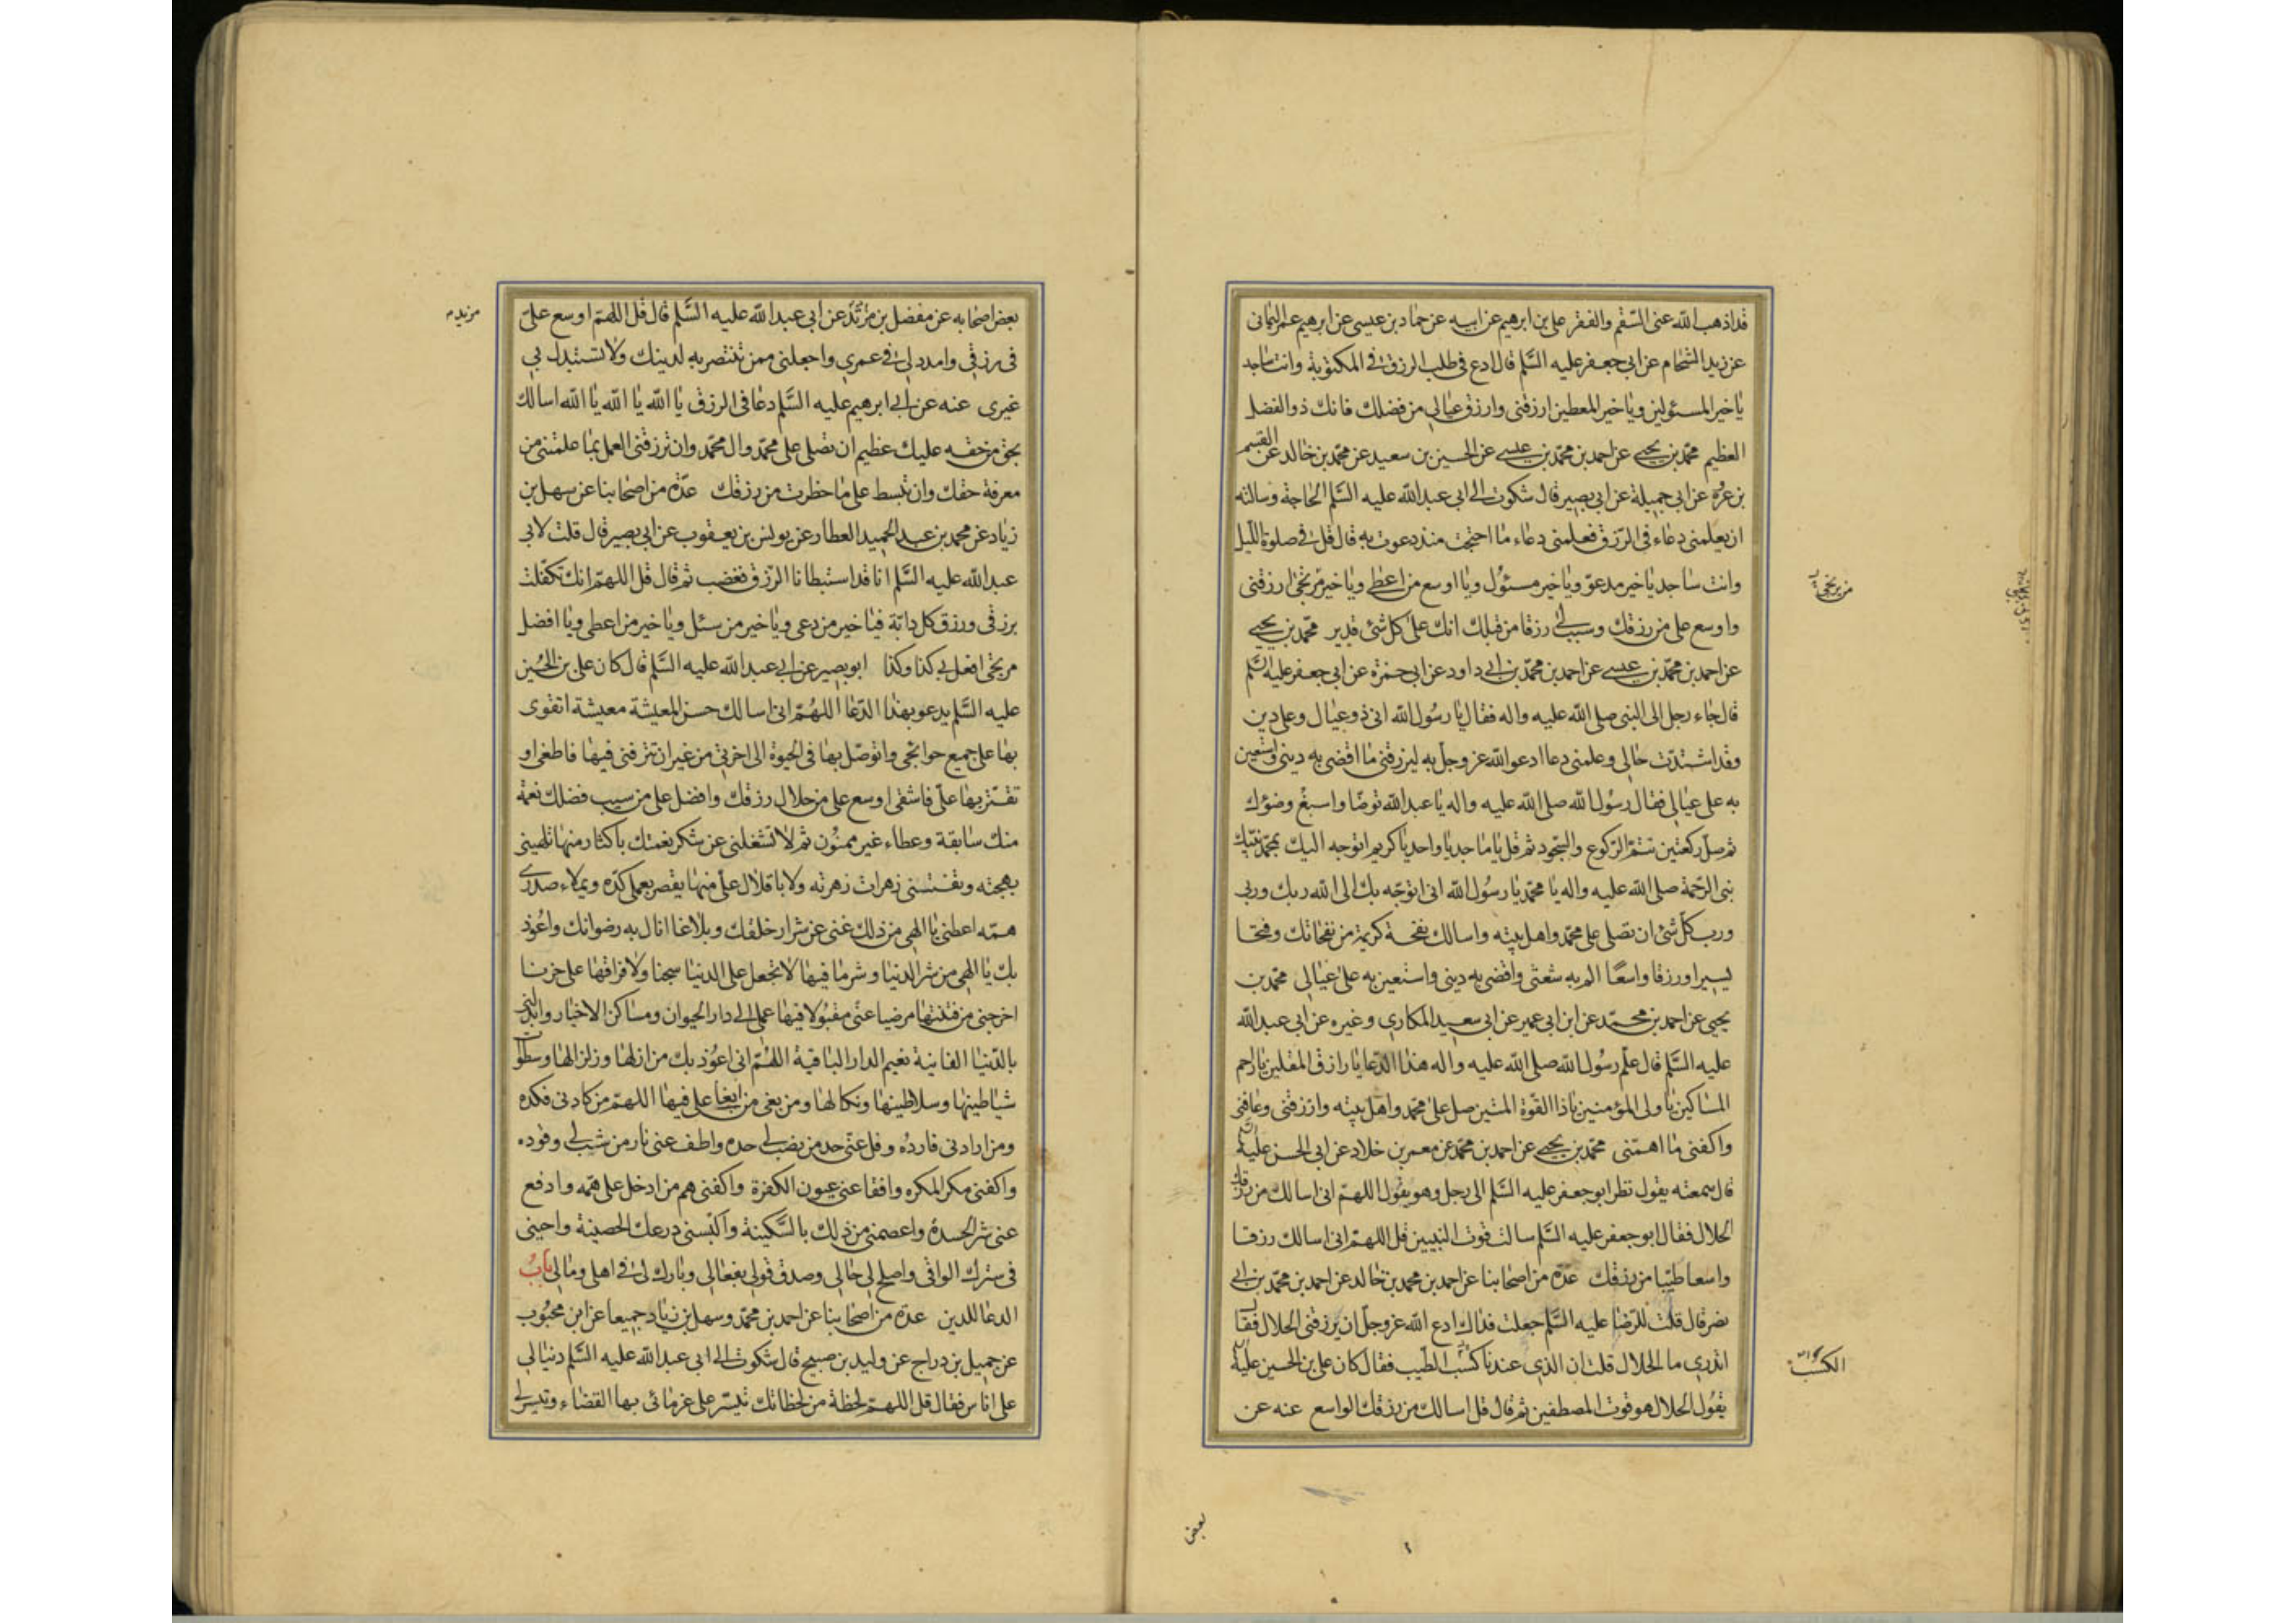 قد اذهب الله عنی السقم والفقر علی بن ابرهیم عن ابیه عن حماد بن عیسی عن ابرهیم عمر الیمانی
عن زید الشحام عن ابی جعفر علیه السَّلم قال ادع فی طلب الرزق فی المکتوبة وانت ساجد
یا خیر المسئولین ویا خیر المعطین ارزقنی وارزق عیالی من فضلک فانک ذو الفضل
العظیم محمّد بن یحیی عن احمد بن محمّد بن عیسی عن الحسین بن سعید عن محمّد بن خالد عن القسم
بن عروة عن ابی جمیلة عن ابی بصیر قال شکوت الی ابی عبدالله علیه السَّلم الحاجة وسالته
ان یعلمنی دعاء فی الرّزق فعلمنی دعاء ما احتجت منذ دعوت به قال قل فی صلوة اللّیل
وانت ساجد یا خیر مدعوّ ویا خیر مسئول ویا اوسع من اعطی ویا خیر مرتجی ارزقنی
واوسع علی من رزقک وسبب لی رزقا من قبلک انک علی کل شئ قدیر محمّد بن یحیی
عن احمد بن محمّد بن عیسی عن احمد بن محمّد بن ابی داود عن ابی حمزة عن ابی جعفر علیه السَّلم
قال جاء رجل الی النبی صلی الله علیه واله فقال یا رسول الله انی ذو عیال وعلی دین
وقد اشتدّت حالی وعلمنی دعا ادعو الله عز وجل به لیرزقنی ما اقضی به دینی واستعین
به علی عیالی فقال رسول الله صلی الله علیه واله یا عبدالله توضّا واسبغ وضوئک
ثم صلّ رکعتین تتمّ الرّکوع والسّجود ثم قل یا ماجد یا واحد یا کریم اتوجه الیک بمحمّد نبیّک
نبی الرّحمة صلی الله علیه واله یا محمّد یا رسول الله انی اتوجّه بک الی الله ربک وربی
ورب کلّ شئ ان تصلی علی محمّد واهل بیته واسالک نفحة کریمة من نفحاتک وفتحا
یسیرا ورزقا واسعًا الم به شعثی واقضی به دینی واستعین به علی عیالی محمّد بن
یحیی عن احمد بن محمّد عن ابن ابی عمیر عن ابی سعید المکاری وغیره عن ابی عبدالله
علیه السَّلم قال علّم رسول الله صلی الله علیه واله هذا الدّعا یا رازق المقلین یا راحم
المساکین یا ولی المؤمنین یا ذا القوّة المتین صل علی محمّد واهل بیته وارزقنی وعافنی
واکفنی ما اهمّنی محمّد بن یحیی عن احمد بن محمّد عن معمر بن خلاد عن ابی الحسن علیه
قال سمعته یقول نظر ابو جعفر علیه السَّلم الی رجل وهو یقول اللهمّ انی اسالک من رزقک
الحلال فقال ابو جعفر علیه السَّلم سالت قوت النبیین قل اللهمّ انی اسالک رزقا
واسعا طیّبا من رزقک عدّة من اصحابنا عن احمد بن محمد بن خالد عن احمد بن محمّد بن ابی
نصر قال قلت للرّضا علیه السَّلم جعلت فداک ادع الله عز وجلّ ان یرزقنی الحلال فقال
اتدری ما الحلال قلت ان الذی عندنا کسب الطّیب فقال کان علی بن الحسین علیه
یقول الحلال هو قوت المصطفین ثم قال قل اسالک من رزقک الواسع عنه عن
من یرتجی
الکسب
بعض
بعض اصحابه عن مفضل بن مزید عن ابی عبدالله علیه السَّلم قال قل اللهمّ اوسع علیّ
فی رزقی وامدد لی فی عمری واجعلنی ممن تنتصر به لدینک ولا تستبدل بی
غیری عنه عن ابی ابرهیم علیه السَّلم دعا فی الرزق یا الله یا الله یا الله اسالک
بحق من حقه علیک عظیم ان تصلی علی محمّد وال محمّد وان ترزقنی العمل بما علمتنی من
معرفة حقک وان تبسط علی ما حظرت من رزقک عدّة من اصحابنا عن سهل بن
زیاد عن محمد بن عبد الحمید العطار عن یونس بن یعقوب عن ابی بصیر قال قلت لابی
عبدالله علیه السَّلم انا قد استبطانا الرّزق فغضب ثم قال قل اللهمّ انک تکفّلت
برزقی ورزق کل دابّة فیا خیر من دعی ویا خیر من سئل ویا خیر من اعطی ویا افضل
مرتجی افعل بی کذا وکذا ابو بصیر عن ابی عبدالله علیه السَّلم قال کان علی بن الحسین
علیه السَّلم یدعو بهذا الدّعا اللهُمّ انی اسالک حسن المعیشة معیشة اتقوی
بها علی جمیع حوائجی واتوصّل بها فی الحیوة الی اخرتی من غیر ان تترفنی فیها فاطغی او
تقتّر بها علیّ فاشقی اوسع علی من حلال رزقک وافضل علی من سیب فضلک نعمة
منک سابقة وعطاء غیر ممنون ثم لا تشغلنی عن شکر نعمتک باکثار منها تلهینی
بهجته وتفتننی زهرات زهرته ولا باقلال علیّ منها یقصر بعملی کدّه ویملاء صدری
همّه اعطنی یا الهی من ذلک غنی عن شرار خلقک وبلاغا انال به رضوانک واعُوذ
بک یا الهی من شر الدنیا وشر ما فیها لا تجعل علی الدنیا سجنا ولا فراقها علی حزنا
اخرجنی من فتنتها مرضیا عنّی مقبولا فیها عملی الی دار الحیوان ومساکن الاخیار وابدلنی
بالدّنیا الفانیة نعیم الدار الباقیة اللهُمّ انی اعُوذ بک من ازلها وزلزالها وسطوات
شیاطینها وسلاطینها ونکالها ومن بغی من ابغا علی فیها اللهمّ من کادنی فکده
ومن ارادنی فارده وفل عنّی حد من نصب لی حده واطف عنی نار من شب لی وقوده
واکفنی مکر المکره وافقا عنی عیون الکفرة واکفنی هم من ادخل علی همّه وادفع
عنی شرّ الحسدة واعصمنی من ذلک بالسَّکینة وألبسنی درعک الحصینة واحینی
فی سترک الواقی واصلح لی حالی وصدق قولی بفعالی وبارک لی فی اهلی ومالی بابُ
الدعا للدین عدّة من اصحابنا عن احمد بن محمّد وسهل بن زیاد جمیعا عن ابن محبُوب
عن جمیل بن دراج عن ولید بن صبیح قال شکوت الی ابی عبدالله علیه السَّلم دینا لی
علی اناس فقال قل اللهمّ لحظة من لحظاتک تیسّر علی غرمائی بها القضاء وتیسر لی
مزید